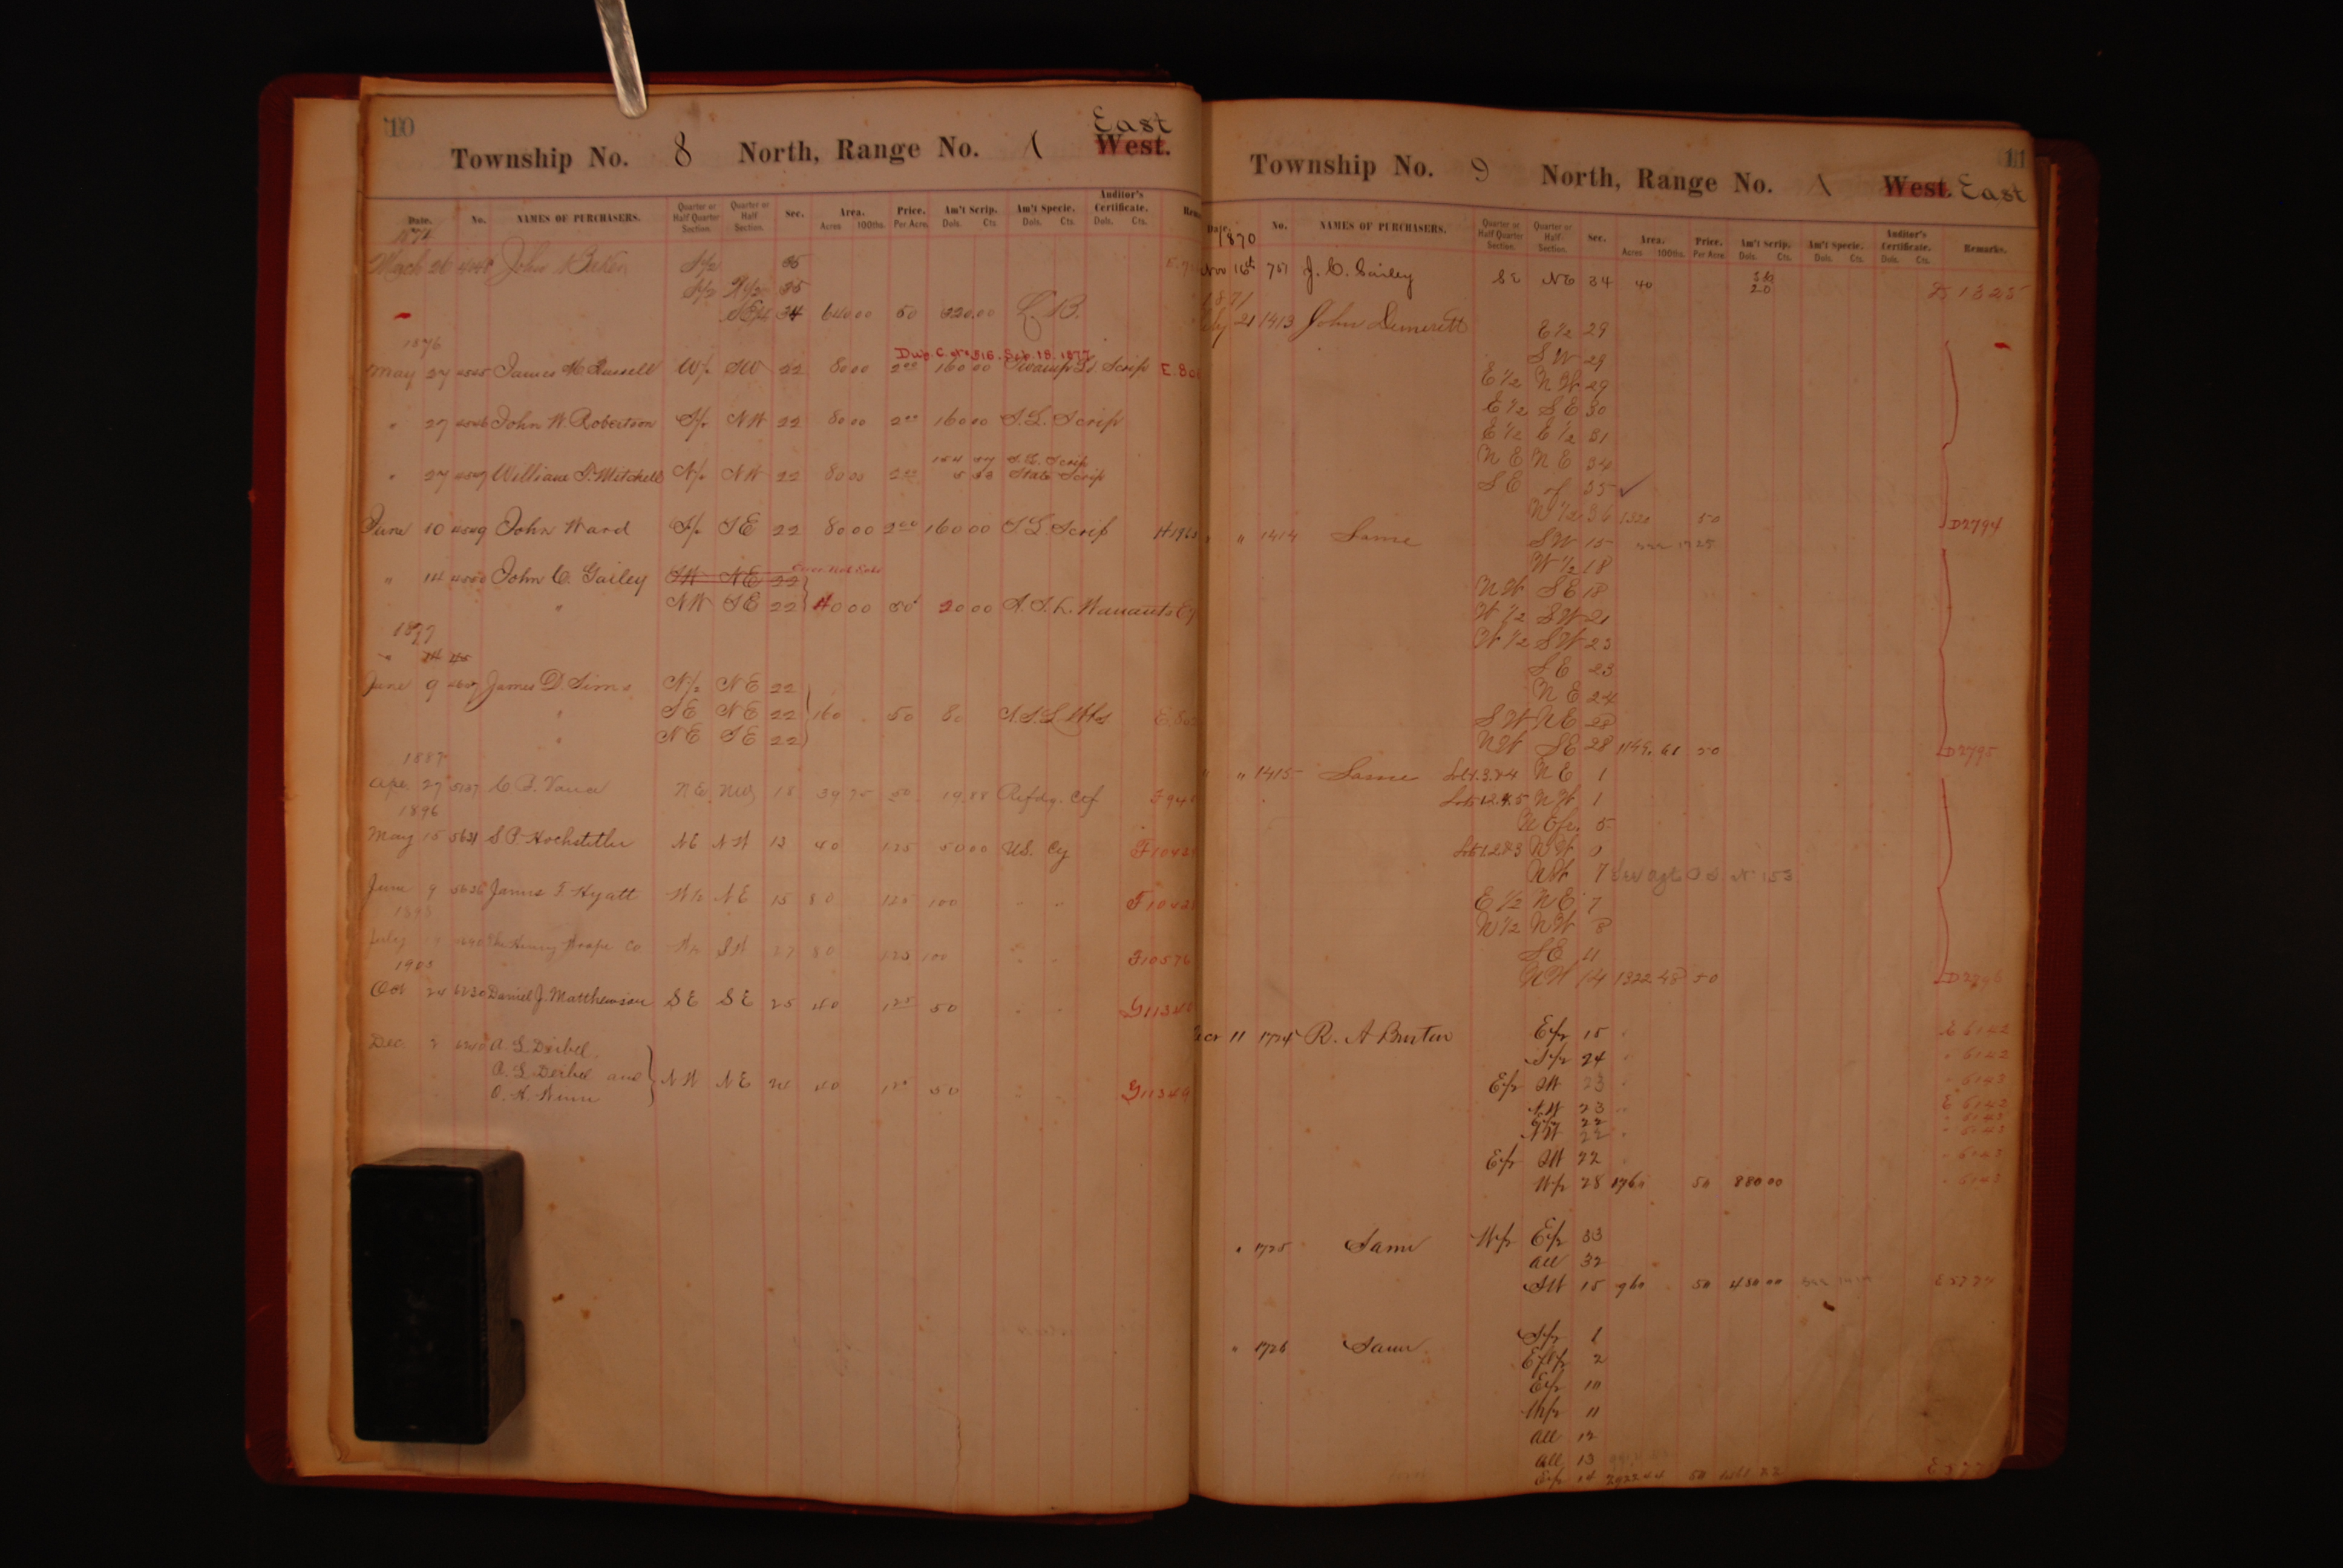 10
East
Township No. 8 North, Range No. 1 West.
Date. No. NAMES OF PURCHASERS. Quarter or Half Quarter Section. Quarter or Half Section. Sec. Area. Acres 100ths. Price. Per Acre Am't Scrip. Dols. Cts. Am't Specie. Dols. Cts. Auditor's Certificate. Dols. Cts.
March 26 John Baker S/2 35
S/2 N/2 35
34 640 00 50 320.00 L. B.
1876
Dup. C. No 516. Sep. 18. 1877
May 27 4545 James M Russell W/2 SW 22 80 00 2 00 160 00 Swamp Ld Scrip
" 27 4546 John W. Robertson S/2 NW 22 80 00 2 00 160 00 S. L. Scrip
154 S. L. Scrip
" 27 4547 William P. Mitchell N/2 NW 22 80 00 2 00 State Scrip
June 10 4549 John Ward S/2 SE 22 80 00 2 00 160 00 S. L. Scrip
" 14 4550 John C. Gailey SW NE 22 Error Not Sold
" NW SE 22 40 00 50 20 00 S. S. L. Warrants
1877
" 14 45
June 9 James D. Sims N/2 NE 22
" SE NE 22 160 50 80
" NE SE 22
1887
Apr. 27 5137 C B. Vance NE NW 18 39 75 50 19.88 Refdg. Ctf
1896
May 15 5631 S P. Hochstetler NE NW 13 40 125 50 00 US. Cy
June 9 5636 James T. Hyatt W/2 NE 15 80 125 100 " "
July SW 27 80 125 100 " " G10576
1905
Oct 24 6230 Daniel J. Matthewson SE SE 25 40 125 50 " "
Dec. 2 A. L. Deibel,
A. L. Deibel and NW NE 24 40 125 50 G11349
11
Township No. 9 North, Range No. 1 West. East
Date. No. NAMES OF PURCHASERS. Quarter or Half Quarter Section. Quarter or Half Section. Sec. Area. Acres 100ths. Price. Per Acre Am't Scrip. Dols. Cts. Am't Specie. Dols. Cts. Auditor's Certificate. Dols. Cts. Remarks.
1870
Nov 16th 751 J. C. Gailey SE NE 34 40 20 D 1325
1871
21 1413 John Demerett E 1/2 29
SW 29
E 1/2 NW 29
E 1/2 SE 30
E 1/2 E 1/2 31
NE NE 34
SE of 35 ✓
N 1/2 36 1320 50 D2794
" 1414 Same SW 15 see 1725
W 1/2 18
NW SE 18
W 1/2 SW 21
W 1/2 SW 23
SE 23
NE 24
SW NE 28
NW SE 28 1199.61 50 D2795
" " 1415 Same Lots 1.3.&4 NE 1
NW 1
5
Lots 1.2&3 NW
NW 7
E 1/2 NE 7
N 1/2 NW 8
SE 11
NW 14 1322.48 50 D2796
11 1724 R. A Burton E/2 15 E 6142
S/2 24 " 6142
E/2 SW 23 " 6143
NW 23 E 6143
E/2 22 " 6143
NW 22 " 6143
E/2 SW 22 " 6143
W/2 28 1760 50 880 00 " 6143
" 1725 Same W/2 E/2 33
All 32
SW 15 960 50 480 00
" 1726 Same S/2 1
2
E/2 10
11
All 12
All 13
E/2 14 2922 44 50 1461 22